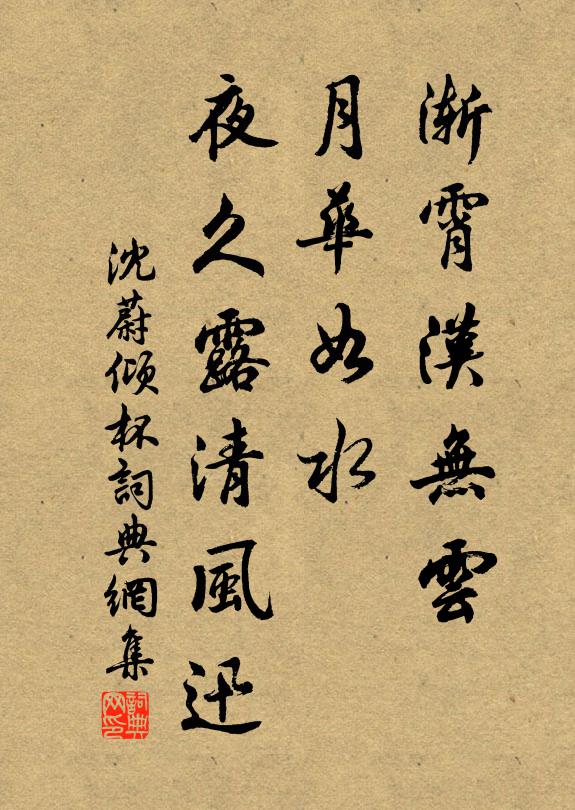 漸霄漢無雲
月華如水
夜久露清風迅
沈蔚傾杯詞典網集
詞典网印